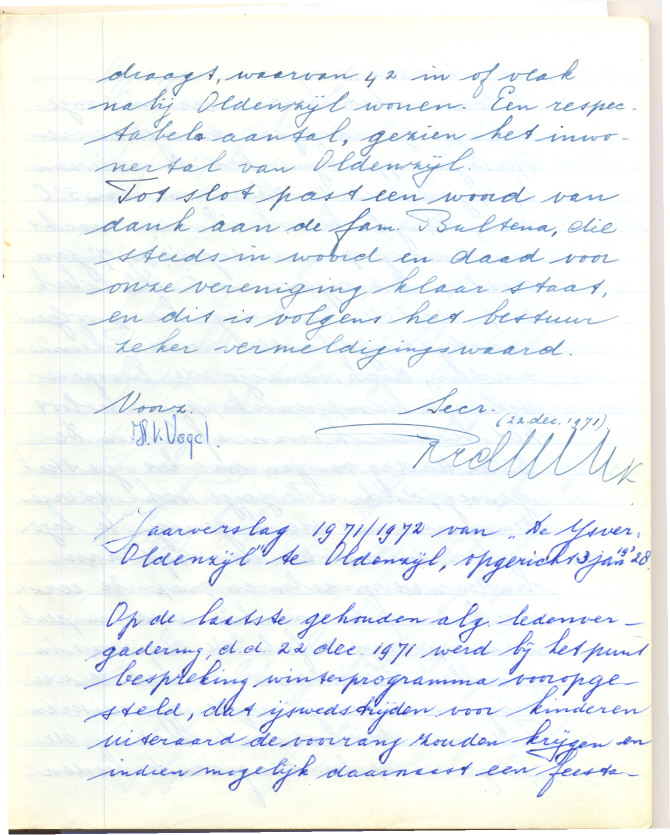 draagt, waarvan 42 in of vlak
nabij Oldenzijl wonen. Een respec-
tabele aantal, gezien het inwo-
nertal van Oldenzijl.
Tot slot past een woord van
dank aan de fam. Bultena, die
steeds in woord en daad voor
onze vereniging klaar staat,
en dit is volgens het bestuur
zeker vermeldigingswaard.
Voorz. Secr.
(22 dec. 1971)
H.V. Vogel.
Jaarverslag 1971/1972 van "De Ysver.
Oldenzijl" te Oldenzijl, opgericht 3 jan 1928.
Op de laatste gehouden alg. ledenver-
gadering, d.d. 22 dec. 1971 werd bij het punt
bespreking winterprogramma vooropge-
steld, dat ijswedstrijden voor kinderen
uiteraard de voorrang zouden krijgen en
indien mogelijk daarnaast een feesta-